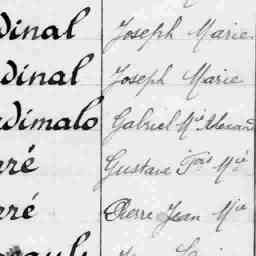 inal Joseph Marie
inal Joseph Marie
imalo Gabriel Mie Alexand
rré Gustave Fois Mie
rré Pierre Jean Mie